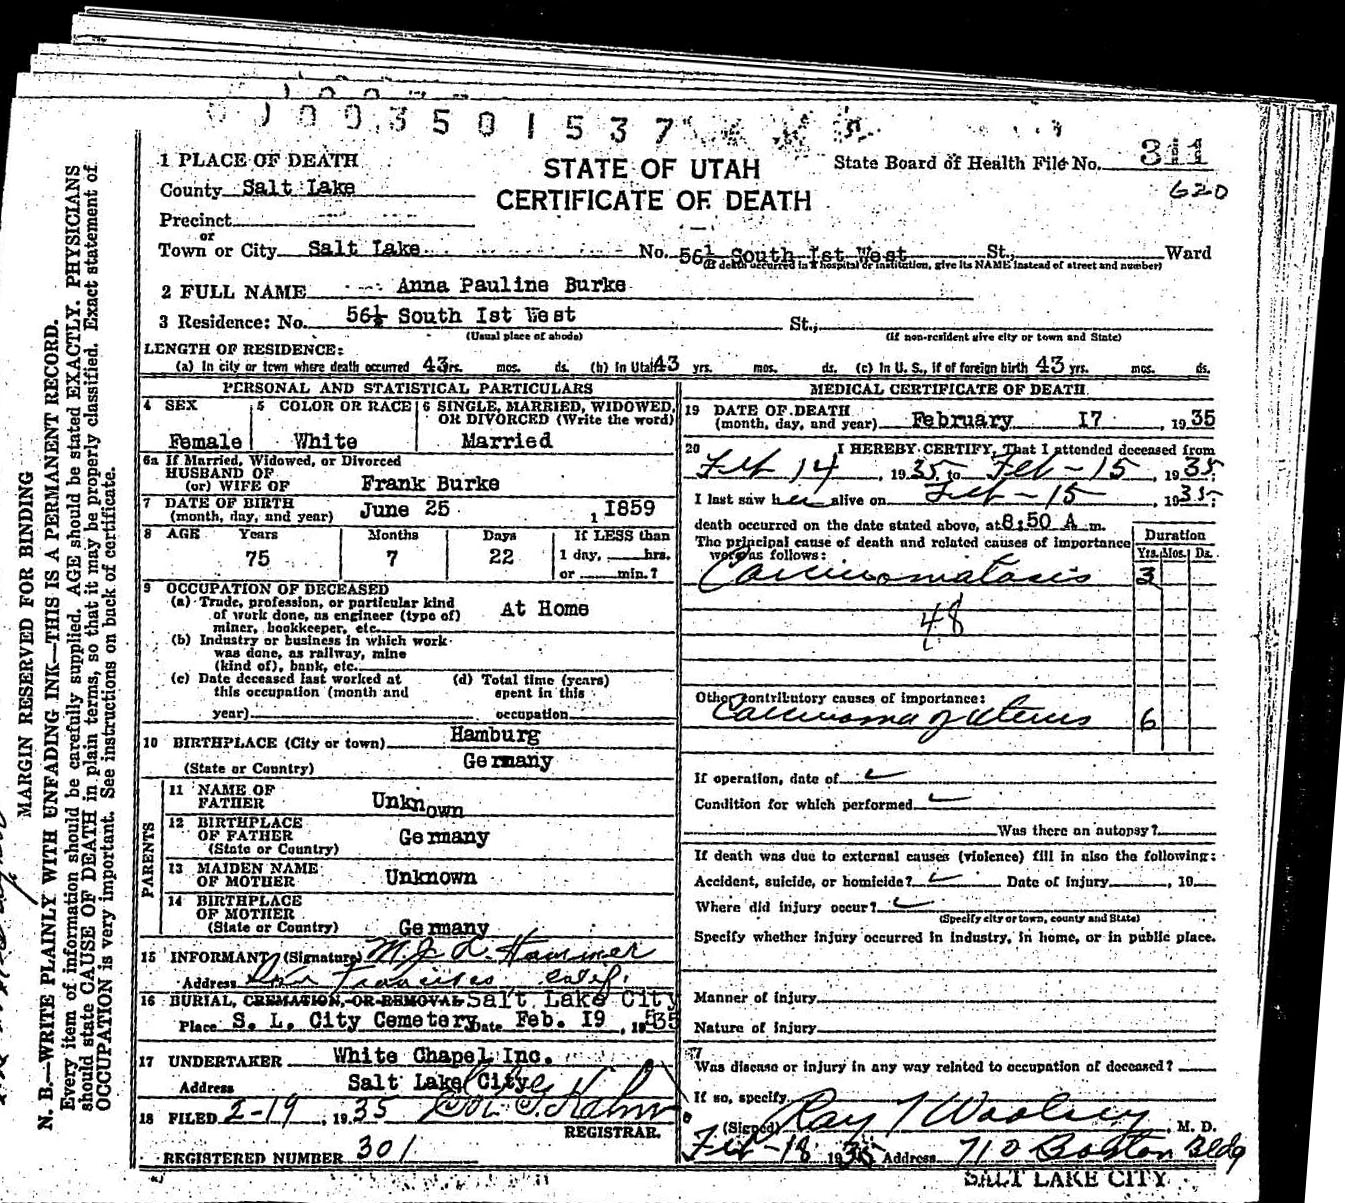 0100350 1537
311
620
1 PLACE OF DEATH
STATE OF UTAH
CERTIFICATE OF DEATH
State Board of Health File No.
County Salt Lake
Precinct
or
Town or City Salt Lake No. 56½ South Ist West St., Ward
(If death occurred in a hospital or institution, give its NAME instead of street and number)
2 FULL NAME Anna Pauline Burke
3 Residence: No. 56½ South Ist West St.,
(Usual place of abode) (If non-resident give city or town and State)
LENGTH OF RESIDENCE:
(a) In city or town where death occurred 43 yrs. mos. ds. (b) In Utah 43 yrs. mos. ds. (c) In U. S., if of foreign birth 43 yrs. mos. ds.
PERSONAL AND STATISTICAL PARTICULARS
4 SEX Female
5 COLOR OR RACE White
6 SINGLE, MARRIED, WIDOWED, OR DIVORCED (Write the word) Married
6a If Married, Widowed, or Divorced
HUSBAND OF
(or) WIFE OF Frank Burke
7 DATE OF BIRTH
(month, day, and year) June 25 1 1859
8 AGE Years Months Days If LESS than
75 7 22 1 day, hrs.
or min.?
9 OCCUPATION OF DECEASED
(a) Trade, profession, or particular kind
of work done, as engineer (type of)
miner, bookkeeper, etc. At Home
(b) Industry or business in which work
was done, as railway, mine
(kind of), bank, etc.
(c) Date deceased last worked at
this occupation (month and
year)
(d) Total time (years)
spent in this
occupation
10 BIRTHPLACE (City or town) Hamburg
(State or Country) Germany
PARENTS
11 NAME OF
FATHER Unknown
12 BIRTHPLACE
OF FATHER
(State or Country) Germany
13 MAIDEN NAME
OF MOTHER Unknown
14 BIRTHPLACE
OF MOTHER
(State or Country) Germany
15 INFORMANT (Signature) Hammer
Address San Francisco Calif.
16 BURIAL, CREMATION, OR REMOVAL Salt Lake City
Place S. L. City Cemetery Date Feb. I9, 1935
17 UNDERTAKER White Chapel Inc.
Address Salt Lake City
18 FILED 2-19, 1935
REGISTRAR.
REGISTERED NUMBER 301
MEDICAL CERTIFICATE OF DEATH
19 DATE OF DEATH
(month, day, and year) February I7, 1935
20 I HEREBY CERTIFY, That I attended deceased from
Feb 14, 1935, to Feb-15, 1935
I last saw her alive on Feb-15 1935
death occurred on the date stated above, at 8:50 A m.
The principal cause of death and related causes of importance
were as follows:
Duration
Yrs. Mos. Ds.
Carcinomatosis 3
48
Other contributory causes of importance:
Carcinoma of uterus 6
If operation, date of
Condition for which performed
Was there an autopsy?
If death was due to external causes (violence) fill in also the following:
Accident, suicide, or homicide? Date of injury , 19
Where did injury occur?
(Specify city or town, county and State)
Specify whether injury occurred in industry, in home, or in public place.
Manner of injury
Nature of injury
Was disease or injury in any way related to occupation of deceased?
If so, specify
(Signed) Ray T Woolsey, M. D.
Feb-18 1935 Address 710 Boston Bldg
SALT LAKE CITY
MARGIN RESERVED FOR BINDING
N. B.—WRITE PLAINLY WITH UNFADING INK—THIS IS A PERMANENT RECORD.
Every item of information should be carefully supplied. AGE should be stated EXACTLY. PHYSICIANS
should state CAUSE OF DEATH in plain terms, so that it may be properly classified. Exact statement of
OCCUPATION is very important. See instructions on back of certificate.